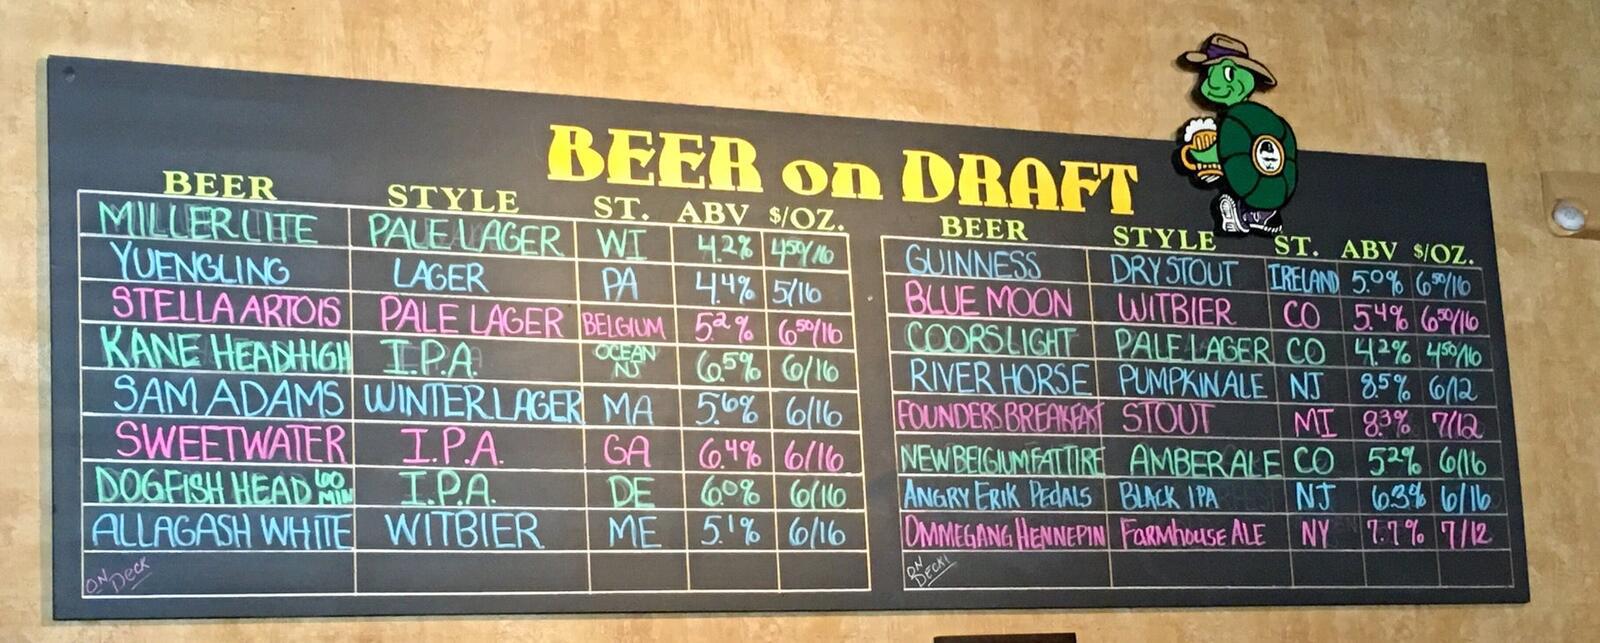 BEER on DRAFT
BEER STYLE ST. ABV $/OZ.
MILLER LITE PALE LAGER WI 4.2% 4.50/16
YUENGLING LAGER PA 4.4% 5/16
STELLA ARTOIS PALE LAGER BELGIUM 5.2% 6.50/16
KANE HEADHIGH I.P.A. OCEAN NJ 6.5% 6/16
SAM ADAMS WINTER LAGER MA 5.6% 6/16
SWEETWATER I.P.A. GA 6.4% 6/16
DOGFISH HEAD 60 MIN I.P.A. DE 6.0% 6/16
ALLAGASH WHITE WITBIER ME 5.1% 6/16
ON DECK
BEER STYLE ST. ABV $/OZ.
GUINNESS DRY STOUT IRELAND 5.0% 6.50/16
BLUE MOON WITBIER CO 5.4% 6.50/16
COORS LIGHT PALE LAGER CO 4.2% 4.50/16
RIVER HORSE PUMPKIN ALE NJ 8.5% 6/12
FOUNDERS BREAKFAST STOUT MI 8.3% 7/12
NEW BELGIUM FAT TIRE AMBER ALE CO 5.2% 6/16
ANGRY ERIK PEDALS BLACK IPA NJ 6.3% 6/16
OMMEGANG HENNEPIN FARMHOUSE ALE NY 7.7% 7/12
ON DECK!